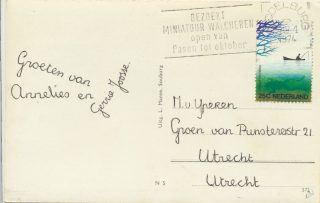 BEZOEKT
MINIATUUR WALCHEREN
open van
Pasen tot oktober
1974
25C NEDERLAND
Groeten van
Annelies en
Gerrie Joosse
Uitg. L. Manes, Souburg
N 5
M.v Yperen
Groen van Prinstererstr 21
Utrecht
Utrecht